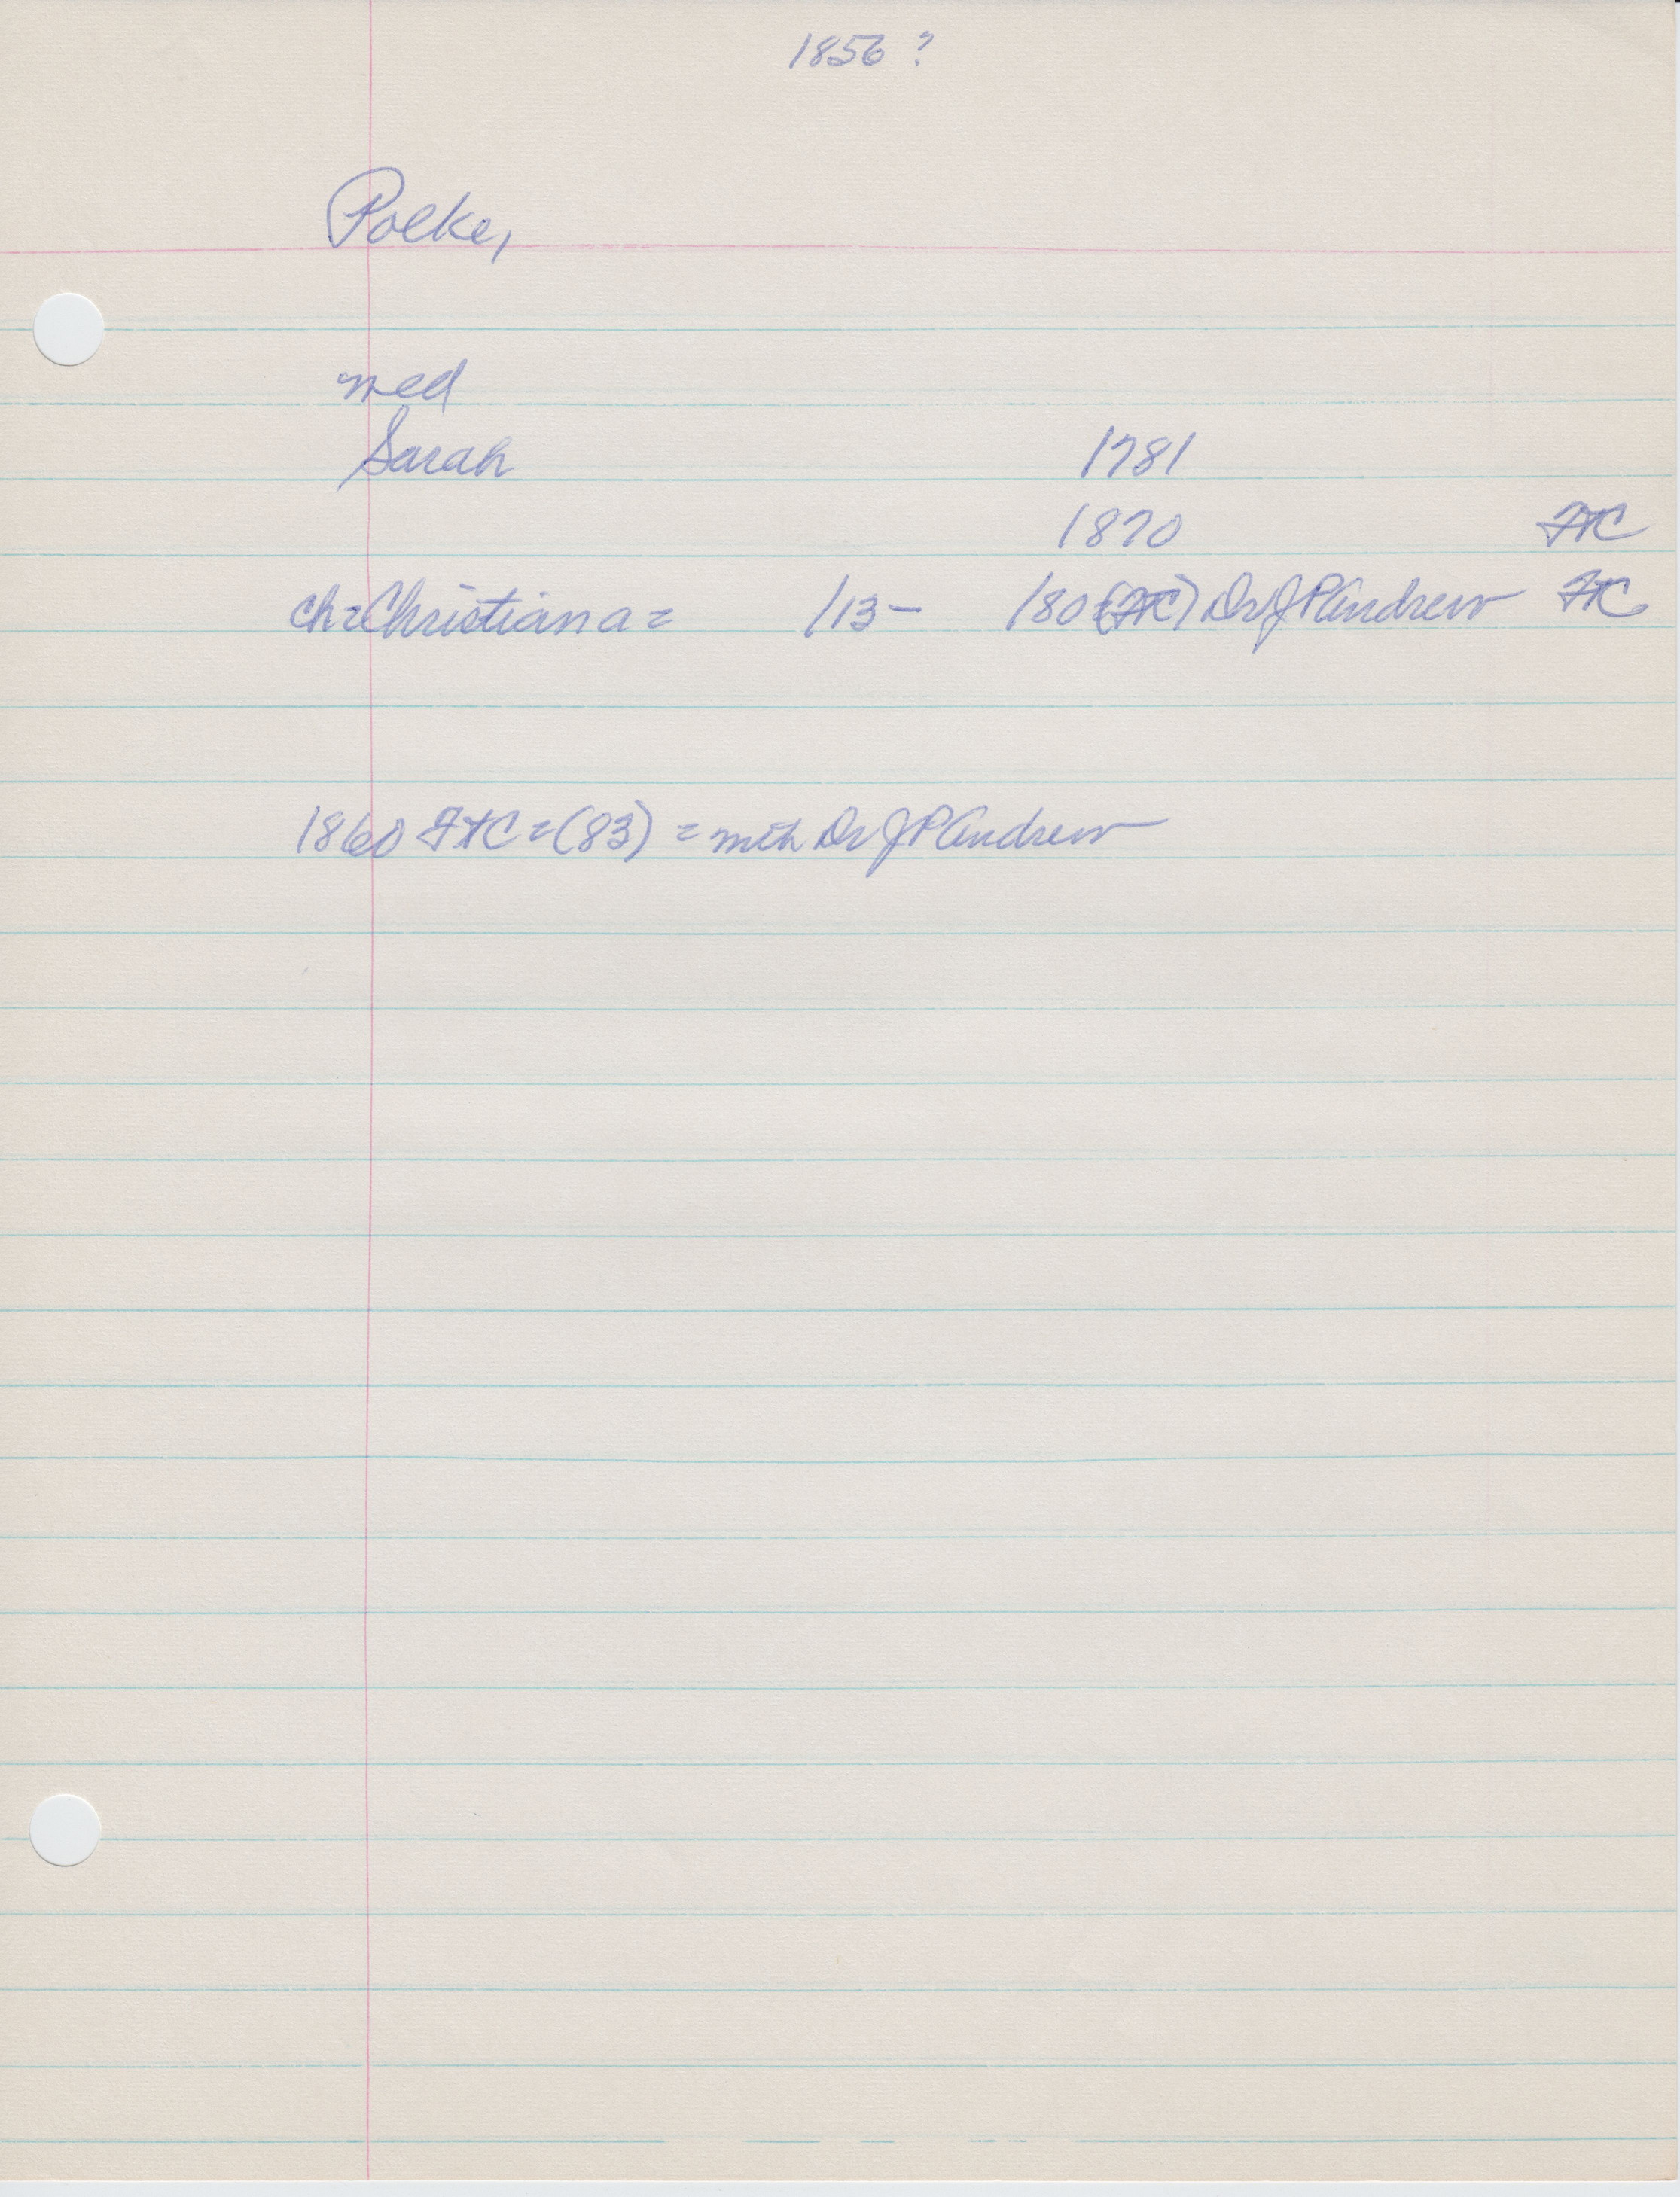 1856 ?
Polke,
med
Sarah 1781
1870 FTC
ch=Christiana= /13- /80 (FTC) Dr J P Andrew FTC
1860 FTC=(83) = mth Dr J P Andrew